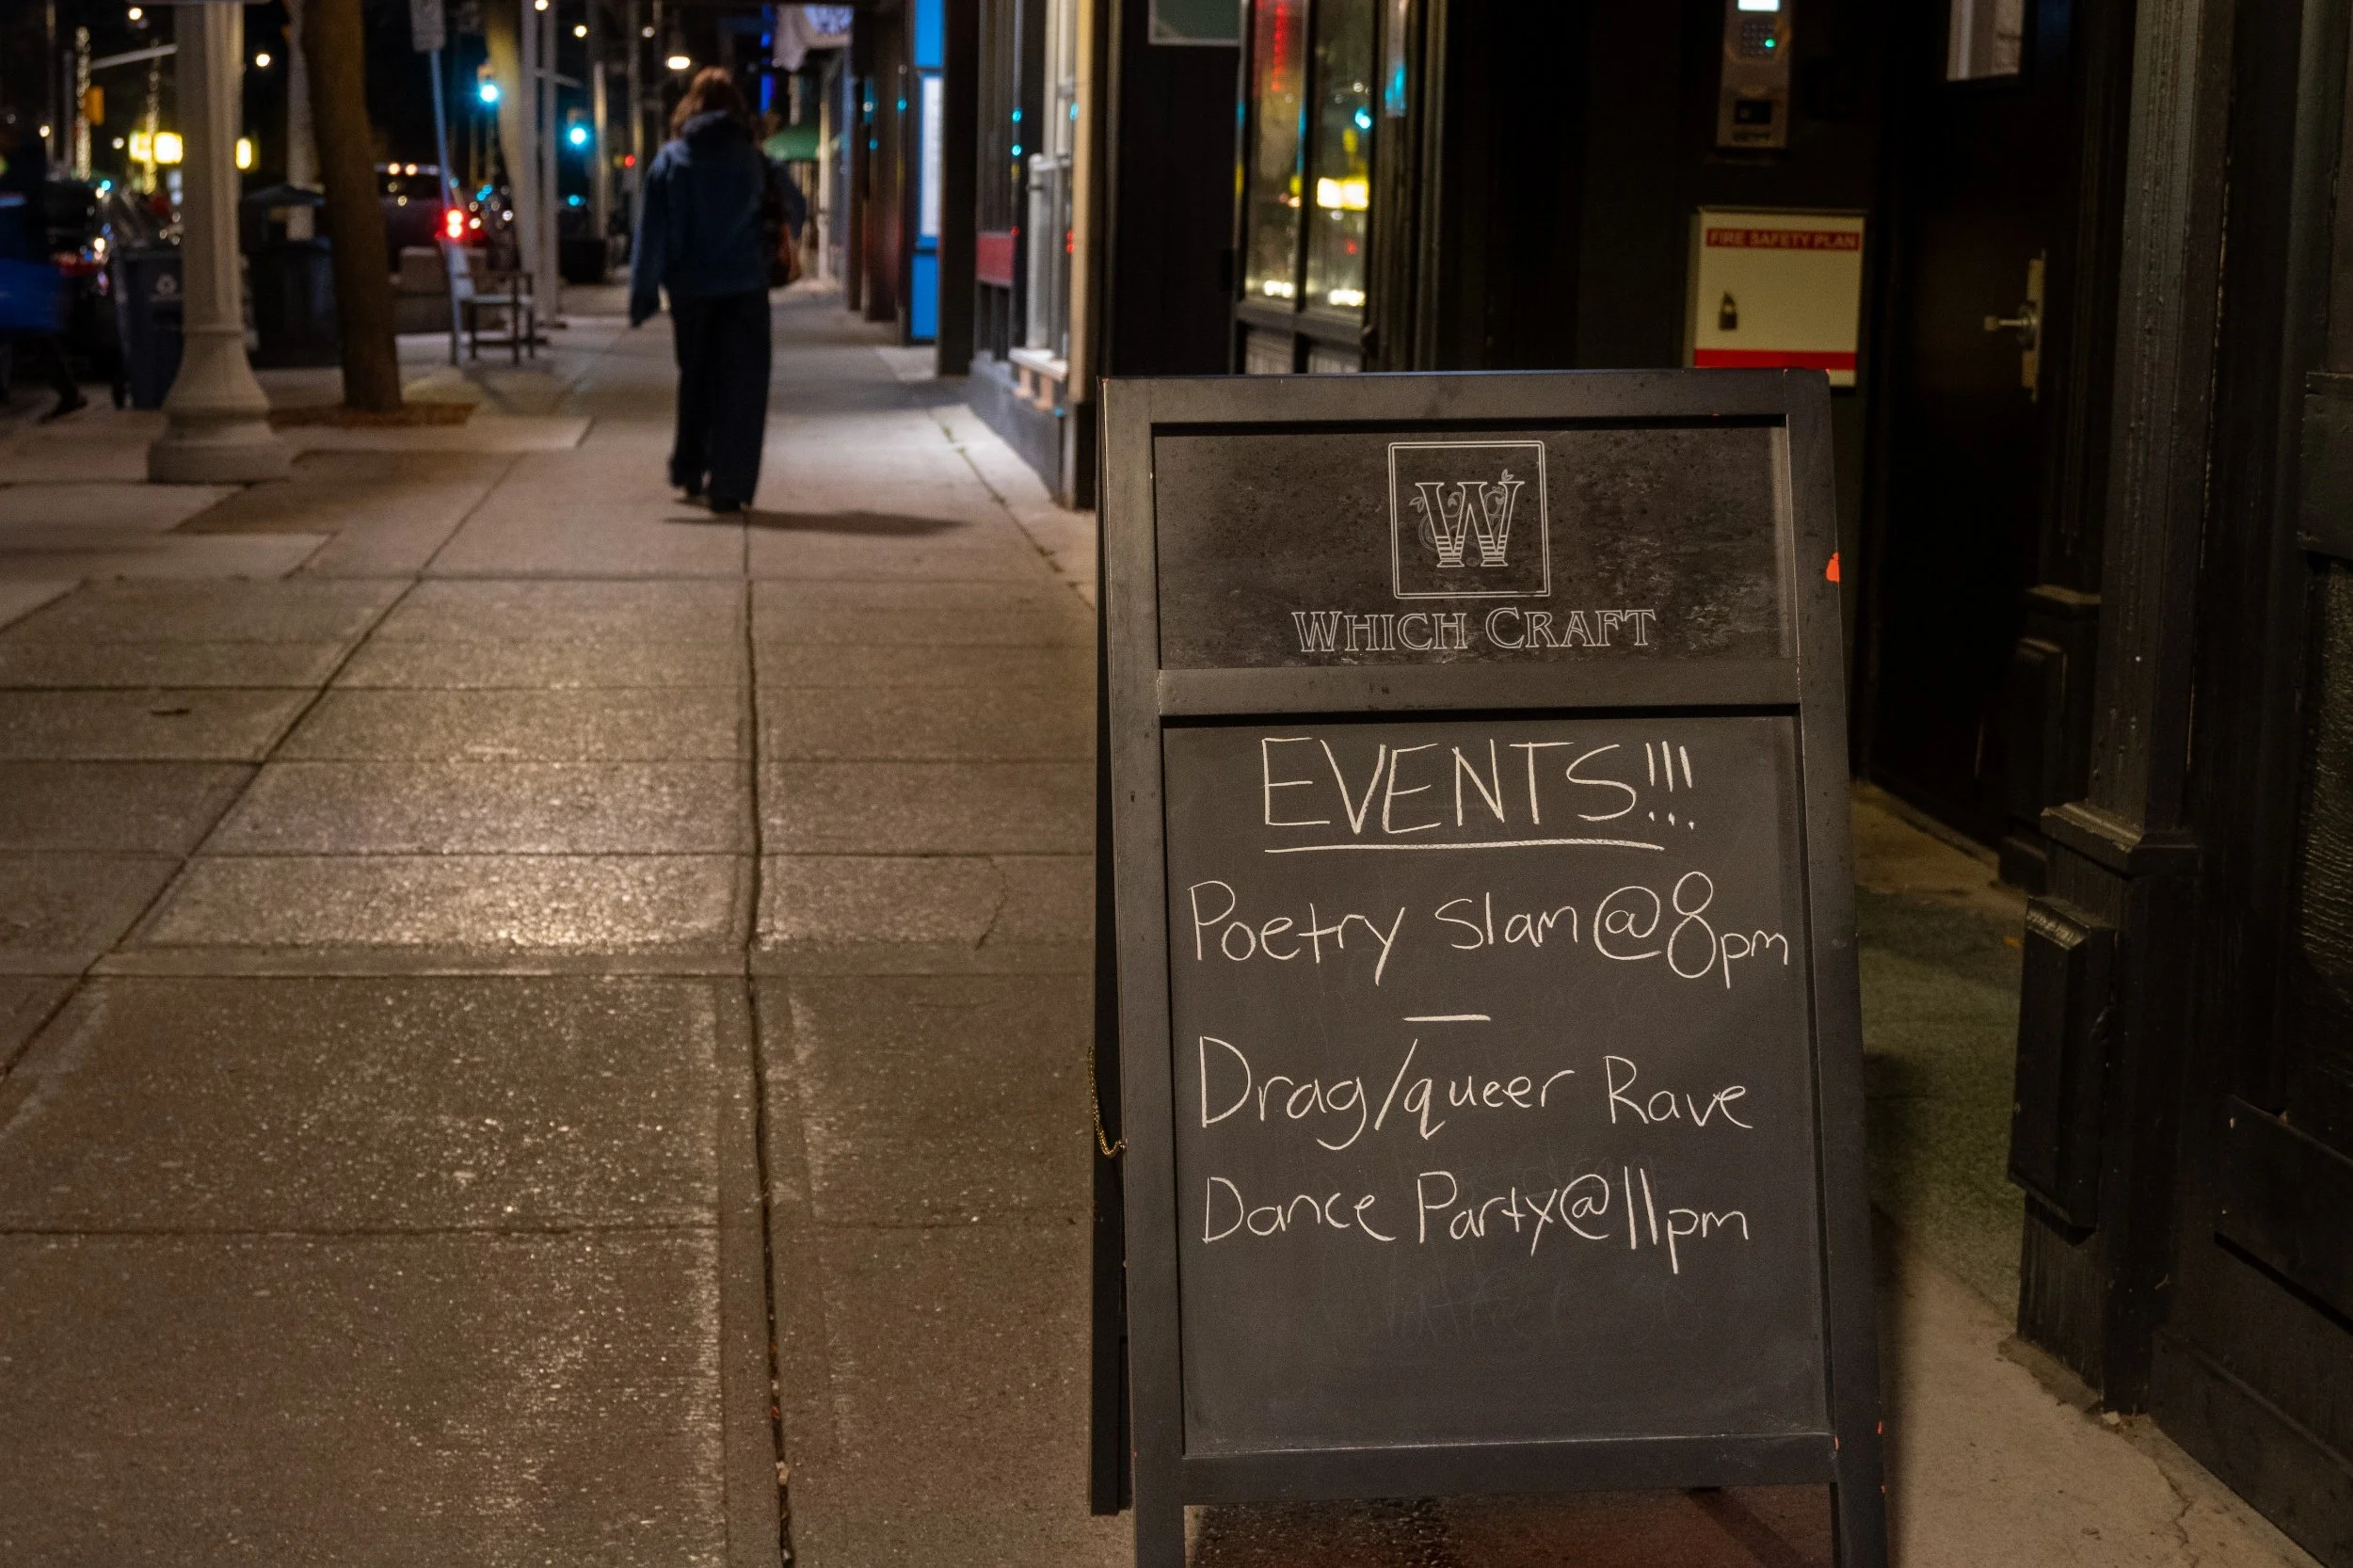 FIRE SAFETY PLAN
W
WHICH CRAFT
EVENTS!!!
Poetry Slam @ 8pm
—
Drag/queer Rave
Dance Party @ 11pm